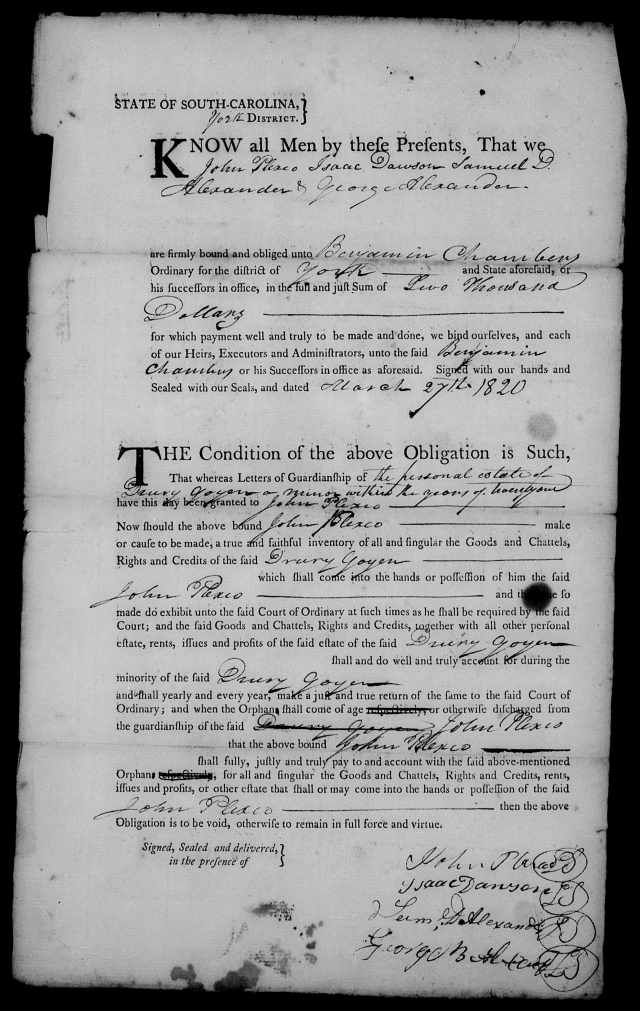 STATE OF SOUTH-CAROLINA,}
York DISTRICT.
KNOW all Men by theſe Preſents, That we
John Plexco Isaac Dawson Samuel D.
Alexander & George Alexander.
are firmly bound and obliged unto Benjamin Chambers
Ordinary for the diſtrict of York and State aforeſaid, or
his ſucceſſors in office, in the full and juſt Sum of Two Thousand
Dollars
for which payment well and truly to be made and done, we bind ourſelves, and each
of our Heirs, Executors and Adminiſtrators, unto the ſaid Benjamin
Chambers or his Succeſſors in office as aforeſaid. Signed with our hands and
Sealed with our Seals, and dated March 27th 1820
THE Condition of the above Obligation is Such,
That whereas Letters of Guardianſhip of the personal estate of
Drury Goyen a minor within the years of twentyone
have this day been granted to John Plexco
Now ſhould the above bound John Plexco make
or cauſe to be made, a true and faithful inventory of all and ſingular the Goods and Chattels,
Rights and Credits of the ſaid Drury Goyen
which ſhall come into the hands or poſſeſſion of him the ſaid
John Plexco and the ſo
made do exhibit unto the ſaid Court of Ordinary at ſuch times as he ſhall be required by the ſaid
Court; and the ſaid Goods and Chattels, Rights and Credits, together with all other perſonal
eſtate, rents, iſſues and profits of the ſaid eſtate of the ſaid Drury Goyen
ſhall and do well and truly account for during the
minority of the ſaid Drury Goyen
and ſhall yearly and every year, make a juſt and true return of the ſame to the ſaid Court of
Ordinary; and when the Orphan ſhall come of age reſpectively, or otherwiſe diſcharged from
the guardianſhip of the ſaid Drury Goyen John Plexco
that the above bound John Plexco
ſhall fully, juſtly and truly pay to and account with the ſaid above-mentioned
Orphans reſpectively, for all and ſingular the Goods and Chattels, Rights and Credits, rents,
iſſues and profits, or other eſtate that ſhall or may come into the hands or poſſeſſion of the ſaid
John Plexco then the above
Obligation is to be void, otherwiſe to remain in full force and virtue.
Signed, Sealed and delivered,}
in the preſence of
John LS
Isaac Dawson LS
Sam. D Alexander LS
George B Alexander LS